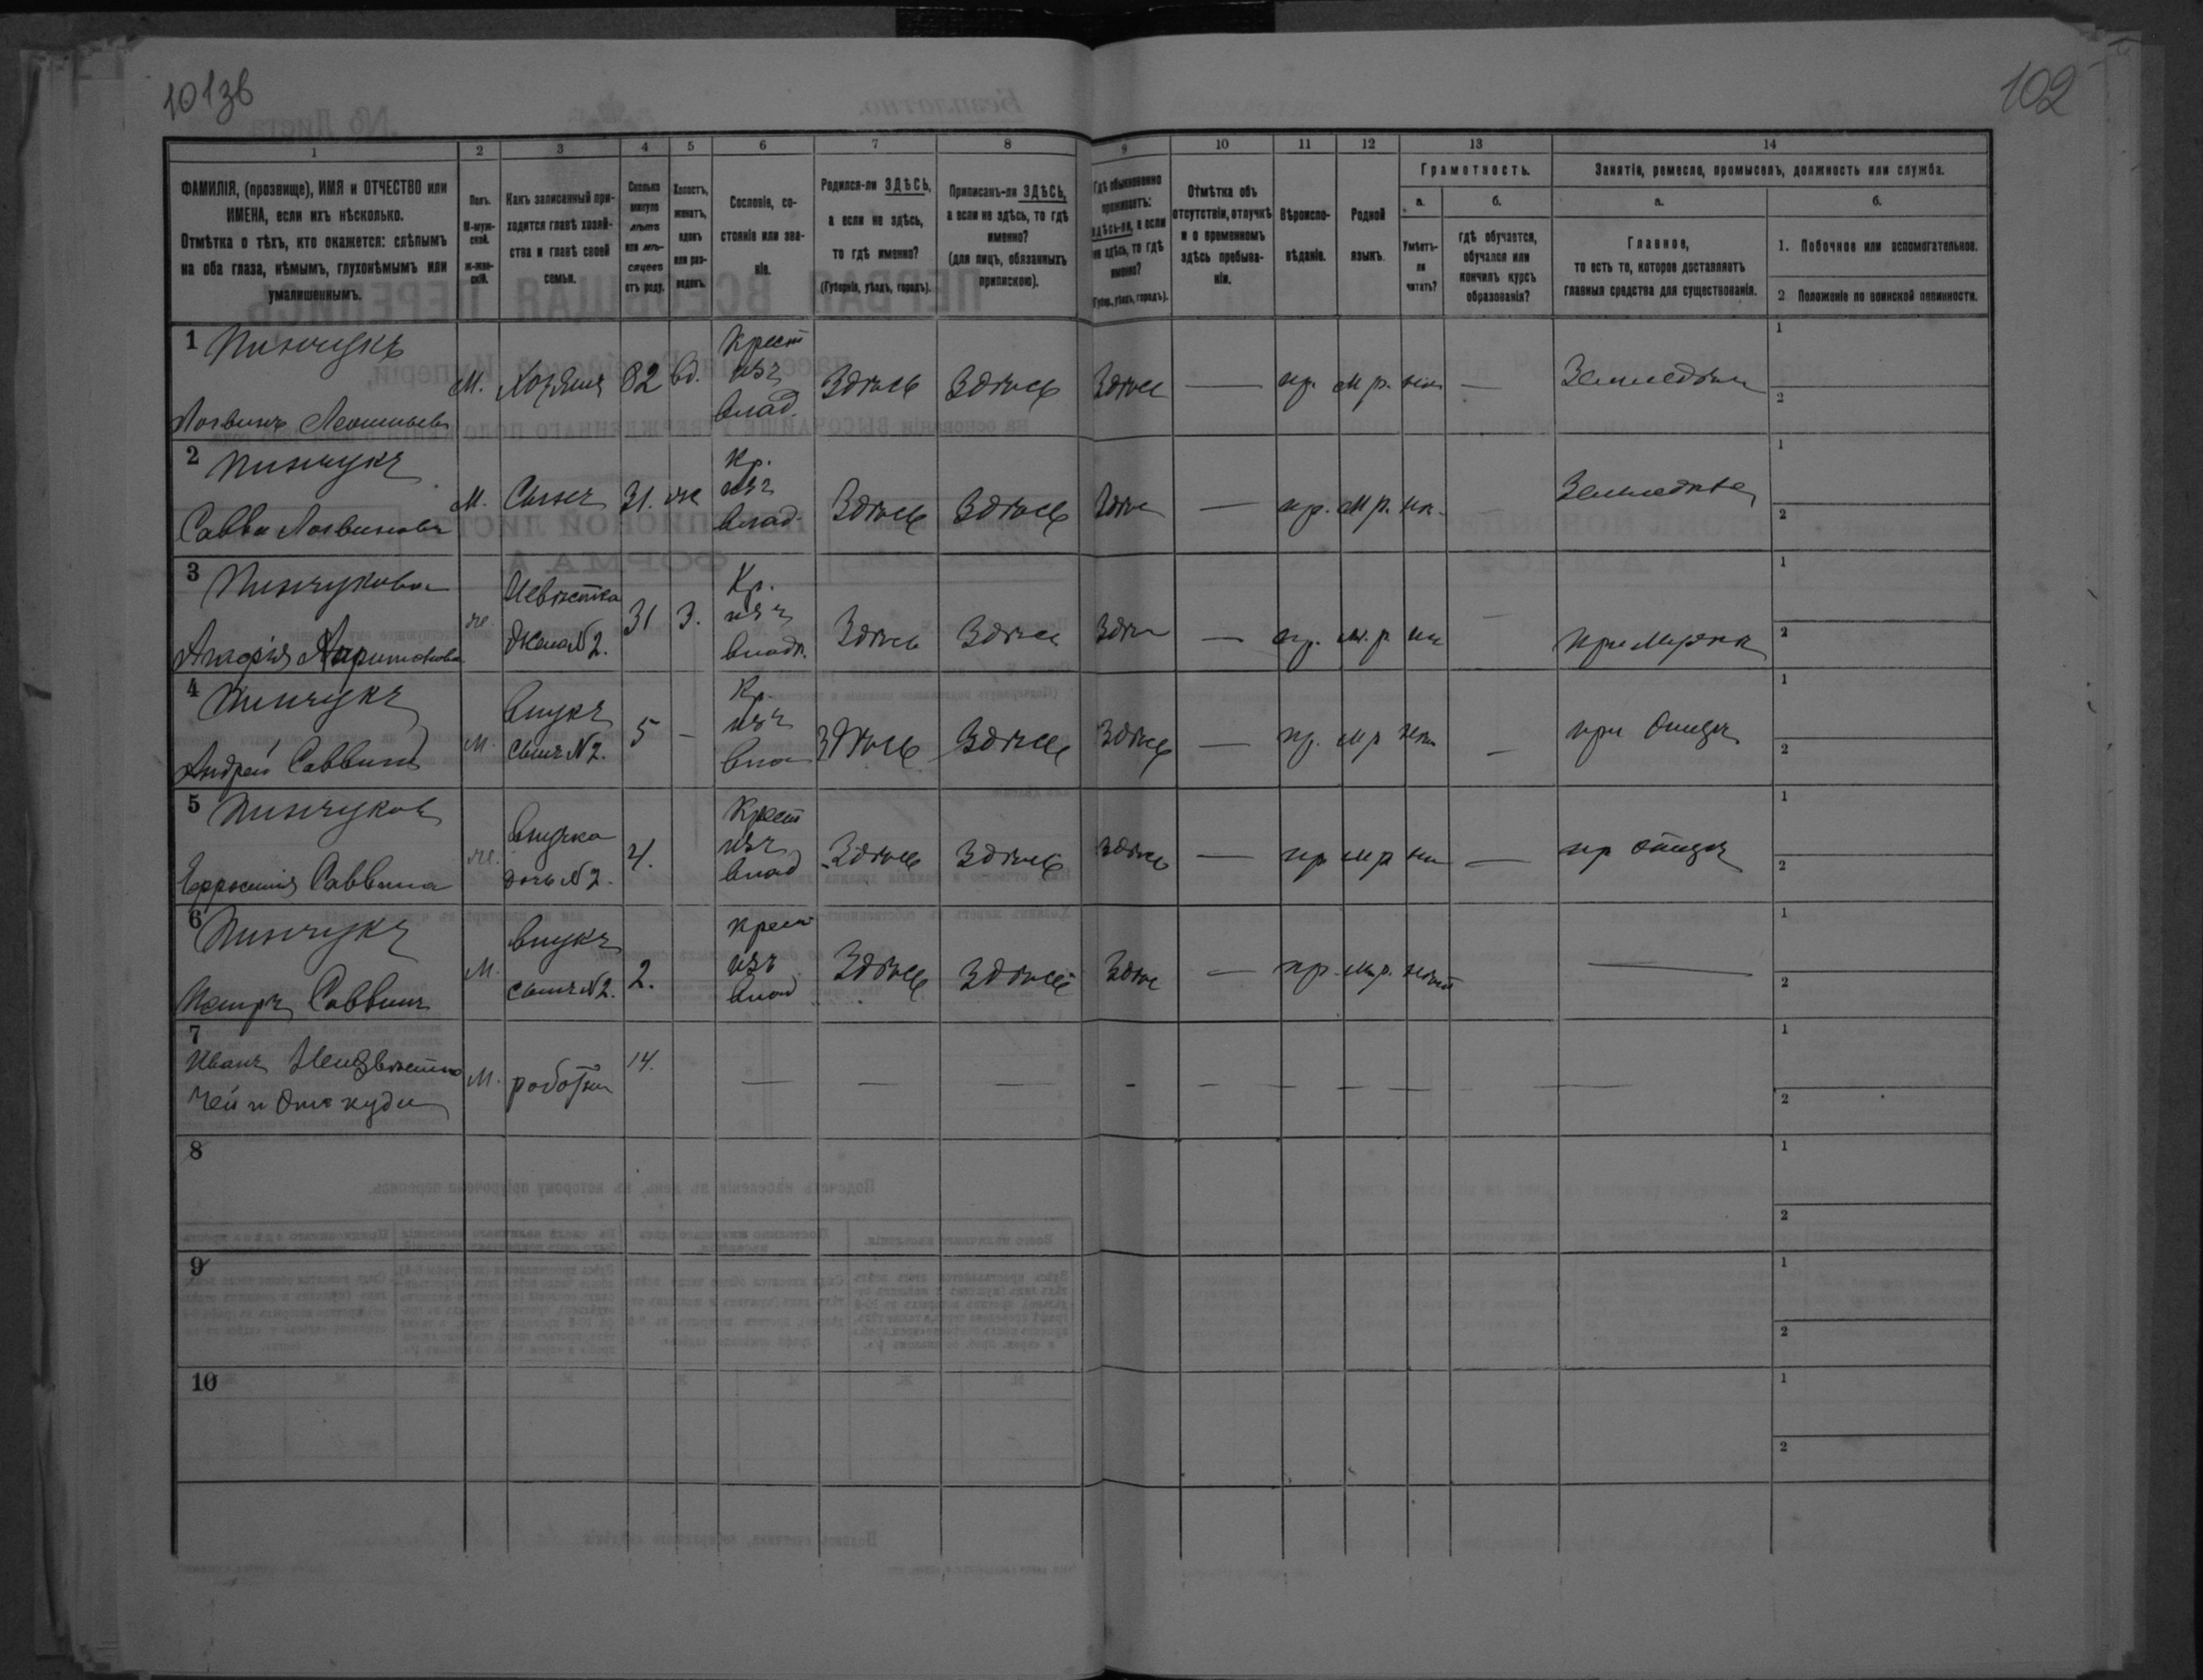 101зв
102
1 2 3 4 5 6 7 8 9 10 11 12 13 14
ФАМИЛІЯ, (прозвище), ИМЯ и ОТЧЕСТВО или
ИМЕНА, если ихъ нѣсколько.
Отмѣтка о тѣхъ, кто окажется: слѣпымъ
на оба глаза, нѣмымъ, глухонѣмымъ или
умалишеннымъ.
Полъ.
М-муж-
ской.
ж-жен-
скій.
Какъ записанный при-
ходится главѣ хозяй-
ства и главѣ своей
семьи.
Сколько
минуло
лѣтъ
или мѣ-
сяцевъ
отъ роду.
Холостъ,
женатъ,
вдовъ
или раз-
веденъ.
Сословіе, со-
стояніе или зва-
ніе.
Родился-ли ЗДѢСЬ,
а если не здѣсь,
то гдѣ именно?
(Губернія, уѣздъ, городъ).
Приписанъ-ли ЗДѢСЬ,
а если не здѣсь, то гдѣ
именно?
(для лицъ, обязанныхъ
припискою).
Гдѣ обыкновенно
проживаетъ:
здѣсь-ли, а если
не здѣсь, то гдѣ
именно?
(Губер., уѣздъ, городъ).
Отмѣтка объ
отсутствіи, отлучкѣ
и о временномъ
здѣсь пребыва-
ніи.
Вѣроиспо-
вѣданіе.
Родной
языкъ.
Грамотность.
а.
Умѣетъ-
ли
читать?
б.
гдѣ обучается,
обучался или
кончилъ курсъ
образованія?
Занятіе, ремесло, промыселъ, должность или служба.
а.
Главное,
то есть то, которое доставляетъ
главныя средства для существованія.
б.
1. Побочное или вспомогательное.
2 Положеніе по воинской повинности.
1 Пинчукъ
Логвинъ Леонтьевъ М. Хозяинъ 62 вд. Крест изъ влад. Здѣсь Здѣсь Здѣсь — пр. мр. — 1
2
2 Пинчукъ
Савва Логвиновъ М. Сынъ 31. же Кр. изъ влад. Здѣсь Здѣсь — пр. мр. 1
2
3 Пинчукова
Агафія Невѣстка Жена N 2. 31 З. Кр. изъ Здѣсь — пр. м.р. 1
2
4 Пинчукъ
Андрей Саввинъ М. Внукъ сынъ N 2. 5 — Кр. изъ Здѣсь Здѣсь Здѣсь — пр. мр — при 1
2
5 Пинчуков
Ефросинія Саввина Внучка дочь N 2. 4. Крест изъ влад Здѣсь Здѣсь Здѣсь — пр мр — 1
2
6 Пинчукъ
Петръ Саввинъ М. Внукъ сынъ N 2. 2. крест изъ влад Здѣсь Здѣсь — пр. мр. — 1
2
7
Иванъ Неизвѣстно М. 14. — — — — — — — — — — 1
чей и 2
8 1
2
9 1
2
10 1
2